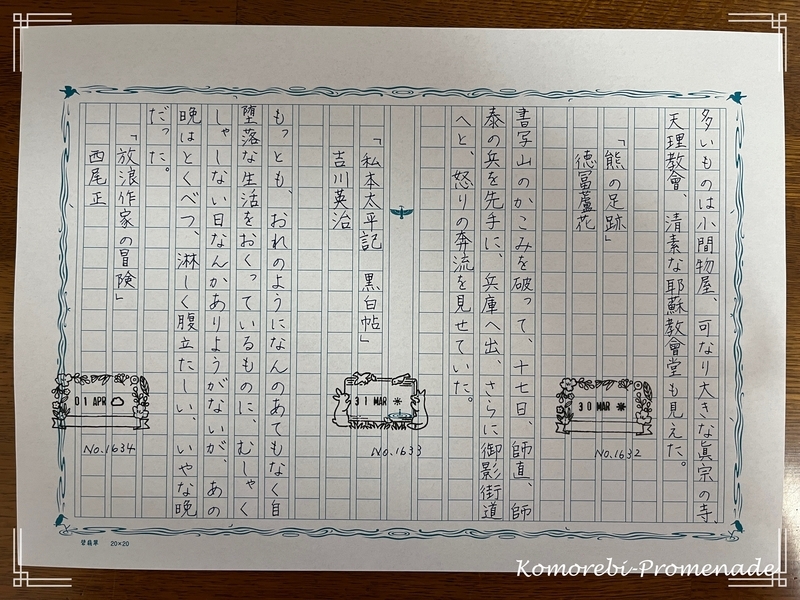 多いものは小間物屋、可なり大きな眞宗の寺、
天理教會、清素な耶蘇教會堂も見えた。
「熊の足跡」
徳冨蘆花
30 MAR
No.1632
書写山のかこみを破って、十七日、師直、師
泰の兵を先手に、兵庫へ出、さらに御影街道
へと、怒りの奔流を見せていた。
「私本太平記 黒白帖」
吉川英治
31 MAR
No.1633
もっとも、おれのようになんのあてもなく自
堕落な生活をおくっているものに、むしゃく
しゃしない日なんかありようがないが、あの
晩はとくべつ、淋しく腹立たしい、いやな晩
だった。
「放浪作家の冒険」
西尾正
01 APR
No.1634
20×20
Komorebi-Promenade